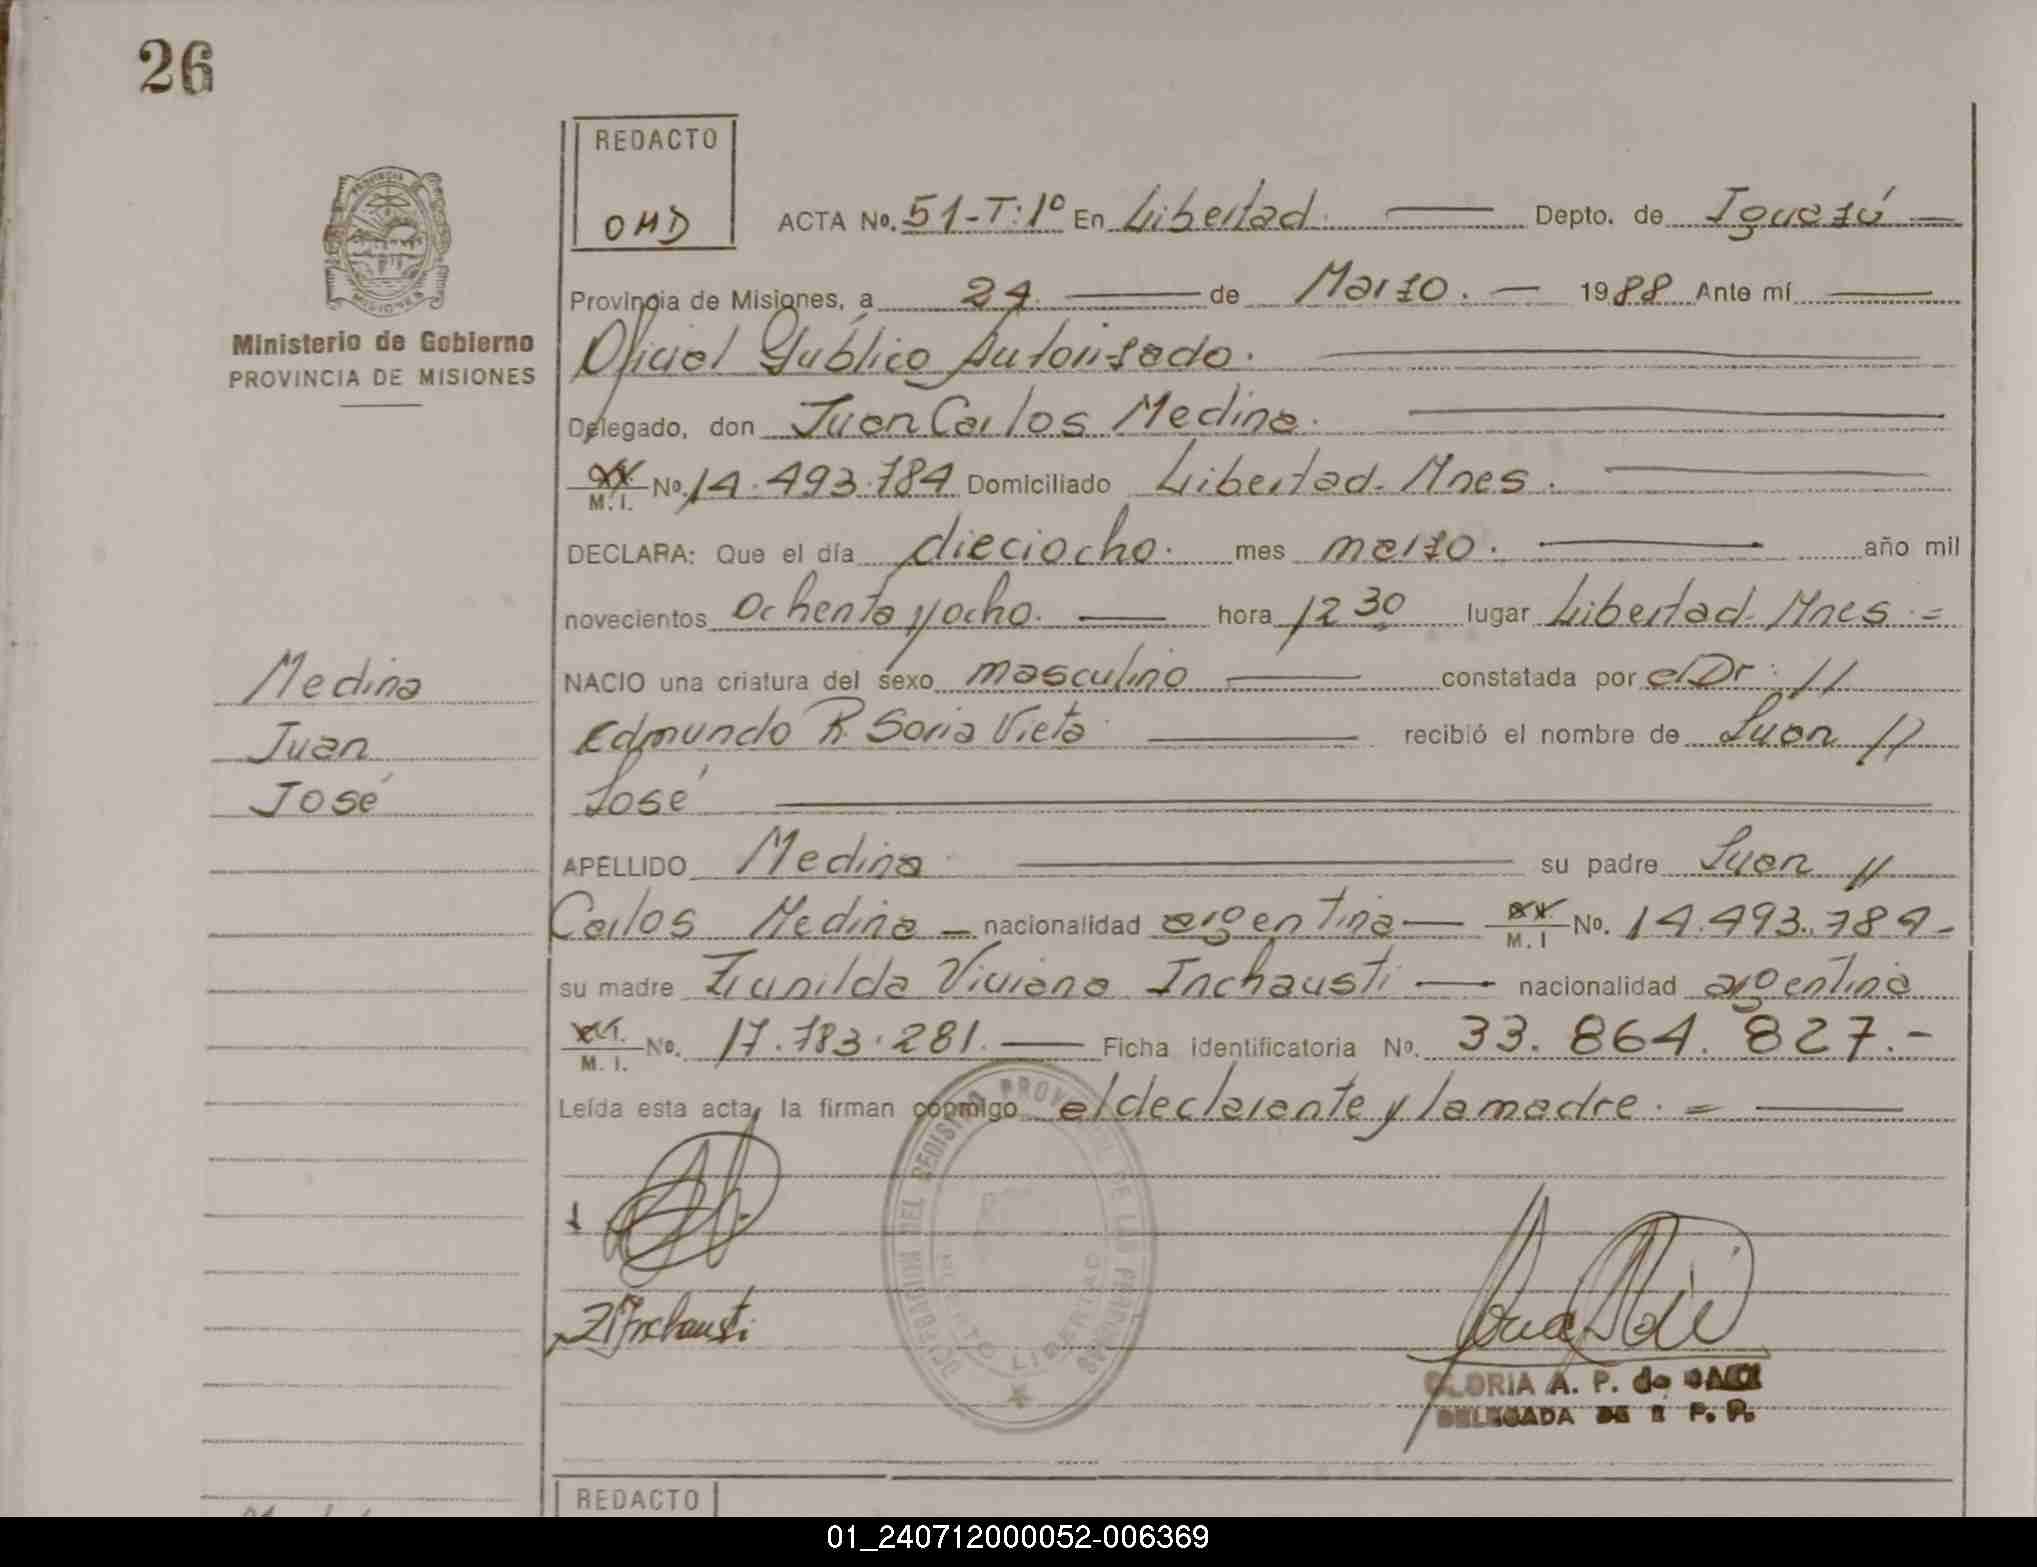 26
REDACTO
OHD
ACTA No. 51-T:1º En Libertad. Depto. de Iguazú
Provincia de Misiones, á 24 de Marzo. 1988 Ante mí
Oficial Público Autorizado.
Delegado, don Juan Carlos Medina.
M. I. No. 14.493.784 Domiciliado Libertad. Mnes.
DECLARA: Que el día dieciocho. mes marzo. año mil
novecientos ochenta y ocho. hora 12 30 lugar Libertad. Mnes. =
NACIO una criatura del sexo masculino constatada por el Dr: //
Edmundo R. Soria Vieta recibió el nombre de Juan //
José
APELLIDO Medina su padre Juan //
Carlos Medina - nacionalidad argentina - M. I No. 14.493.784 -
su madre Zunilda Viviana Inchausti - nacionalidad argentina
M. I. No. 17.783.281. Ficha identificatoria No. 33.864.827.-
Leída esta acta, la firman conmigo el declarante y la madre. =
Z Inchausti
GLORIA A. P. de
DELEGADA DE R P. P.
Ministerio de Gobierno
PROVINCIA DE MISIONES
Medina
Juan
José
PROVINCIA DE
MISIONES
DEL REGISTRO PROVINCIAL DE LAS PERSONAS
LIBERTAD
REDACTO
01_240712000052-006369